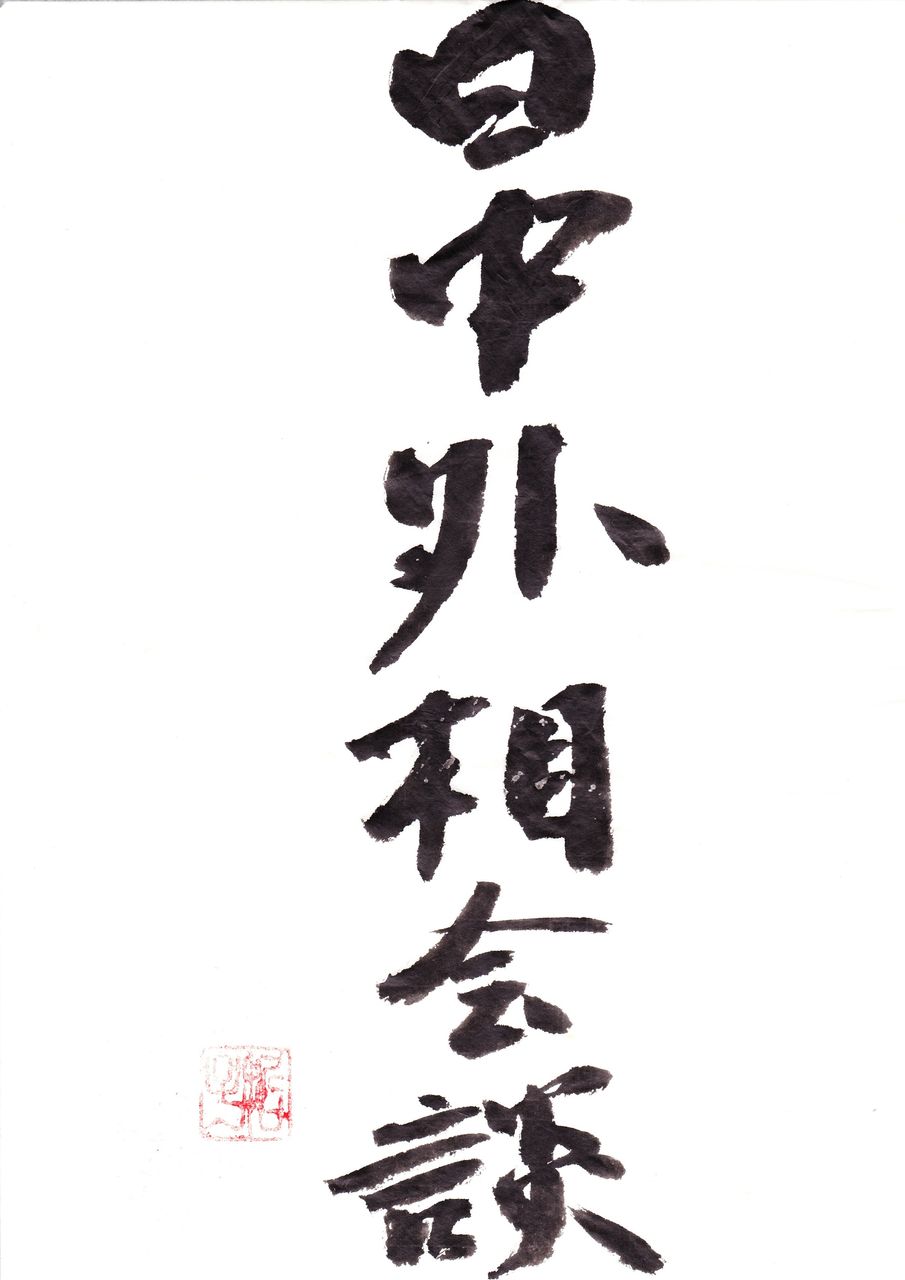 日中外相会談